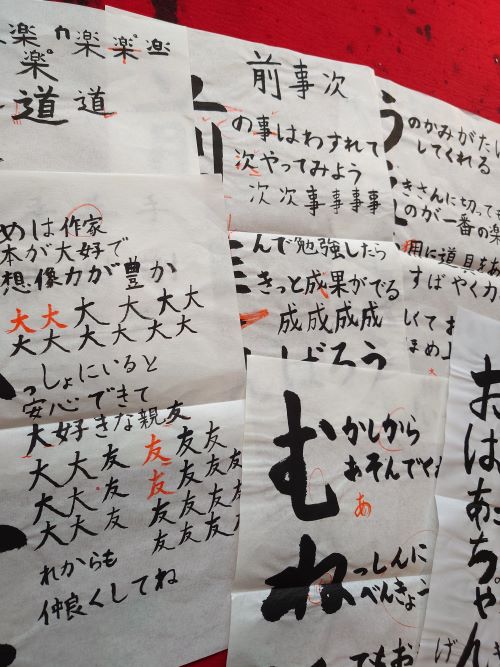 楽 カ 楽 楽 楽
楽
道 道
前 事 次
の事はわすれて
次やってみよう
次 次 事 事 事 事
のかみがた
してくれる
きさんに切って
のが一番の楽
用に道具を
すばやくカ
しくて
ほめ
めは作家
本が大好で
想像力が豊か
大 大 大 大 大 大
大 大 大 大 大 大 大
っしょにいると
安心できて
大好きな親友
大 大 友 友 友 友
大 大 友 友 友 友 友
大 大 友 友 友 友 友
れからも
仲良くしてね
んで勉強したら
きっと成果がでる
成 成 成 成
む
かしから
あそんでく
あ
ね
っしんに
べんきょう
ても
おはあちゃん
げ